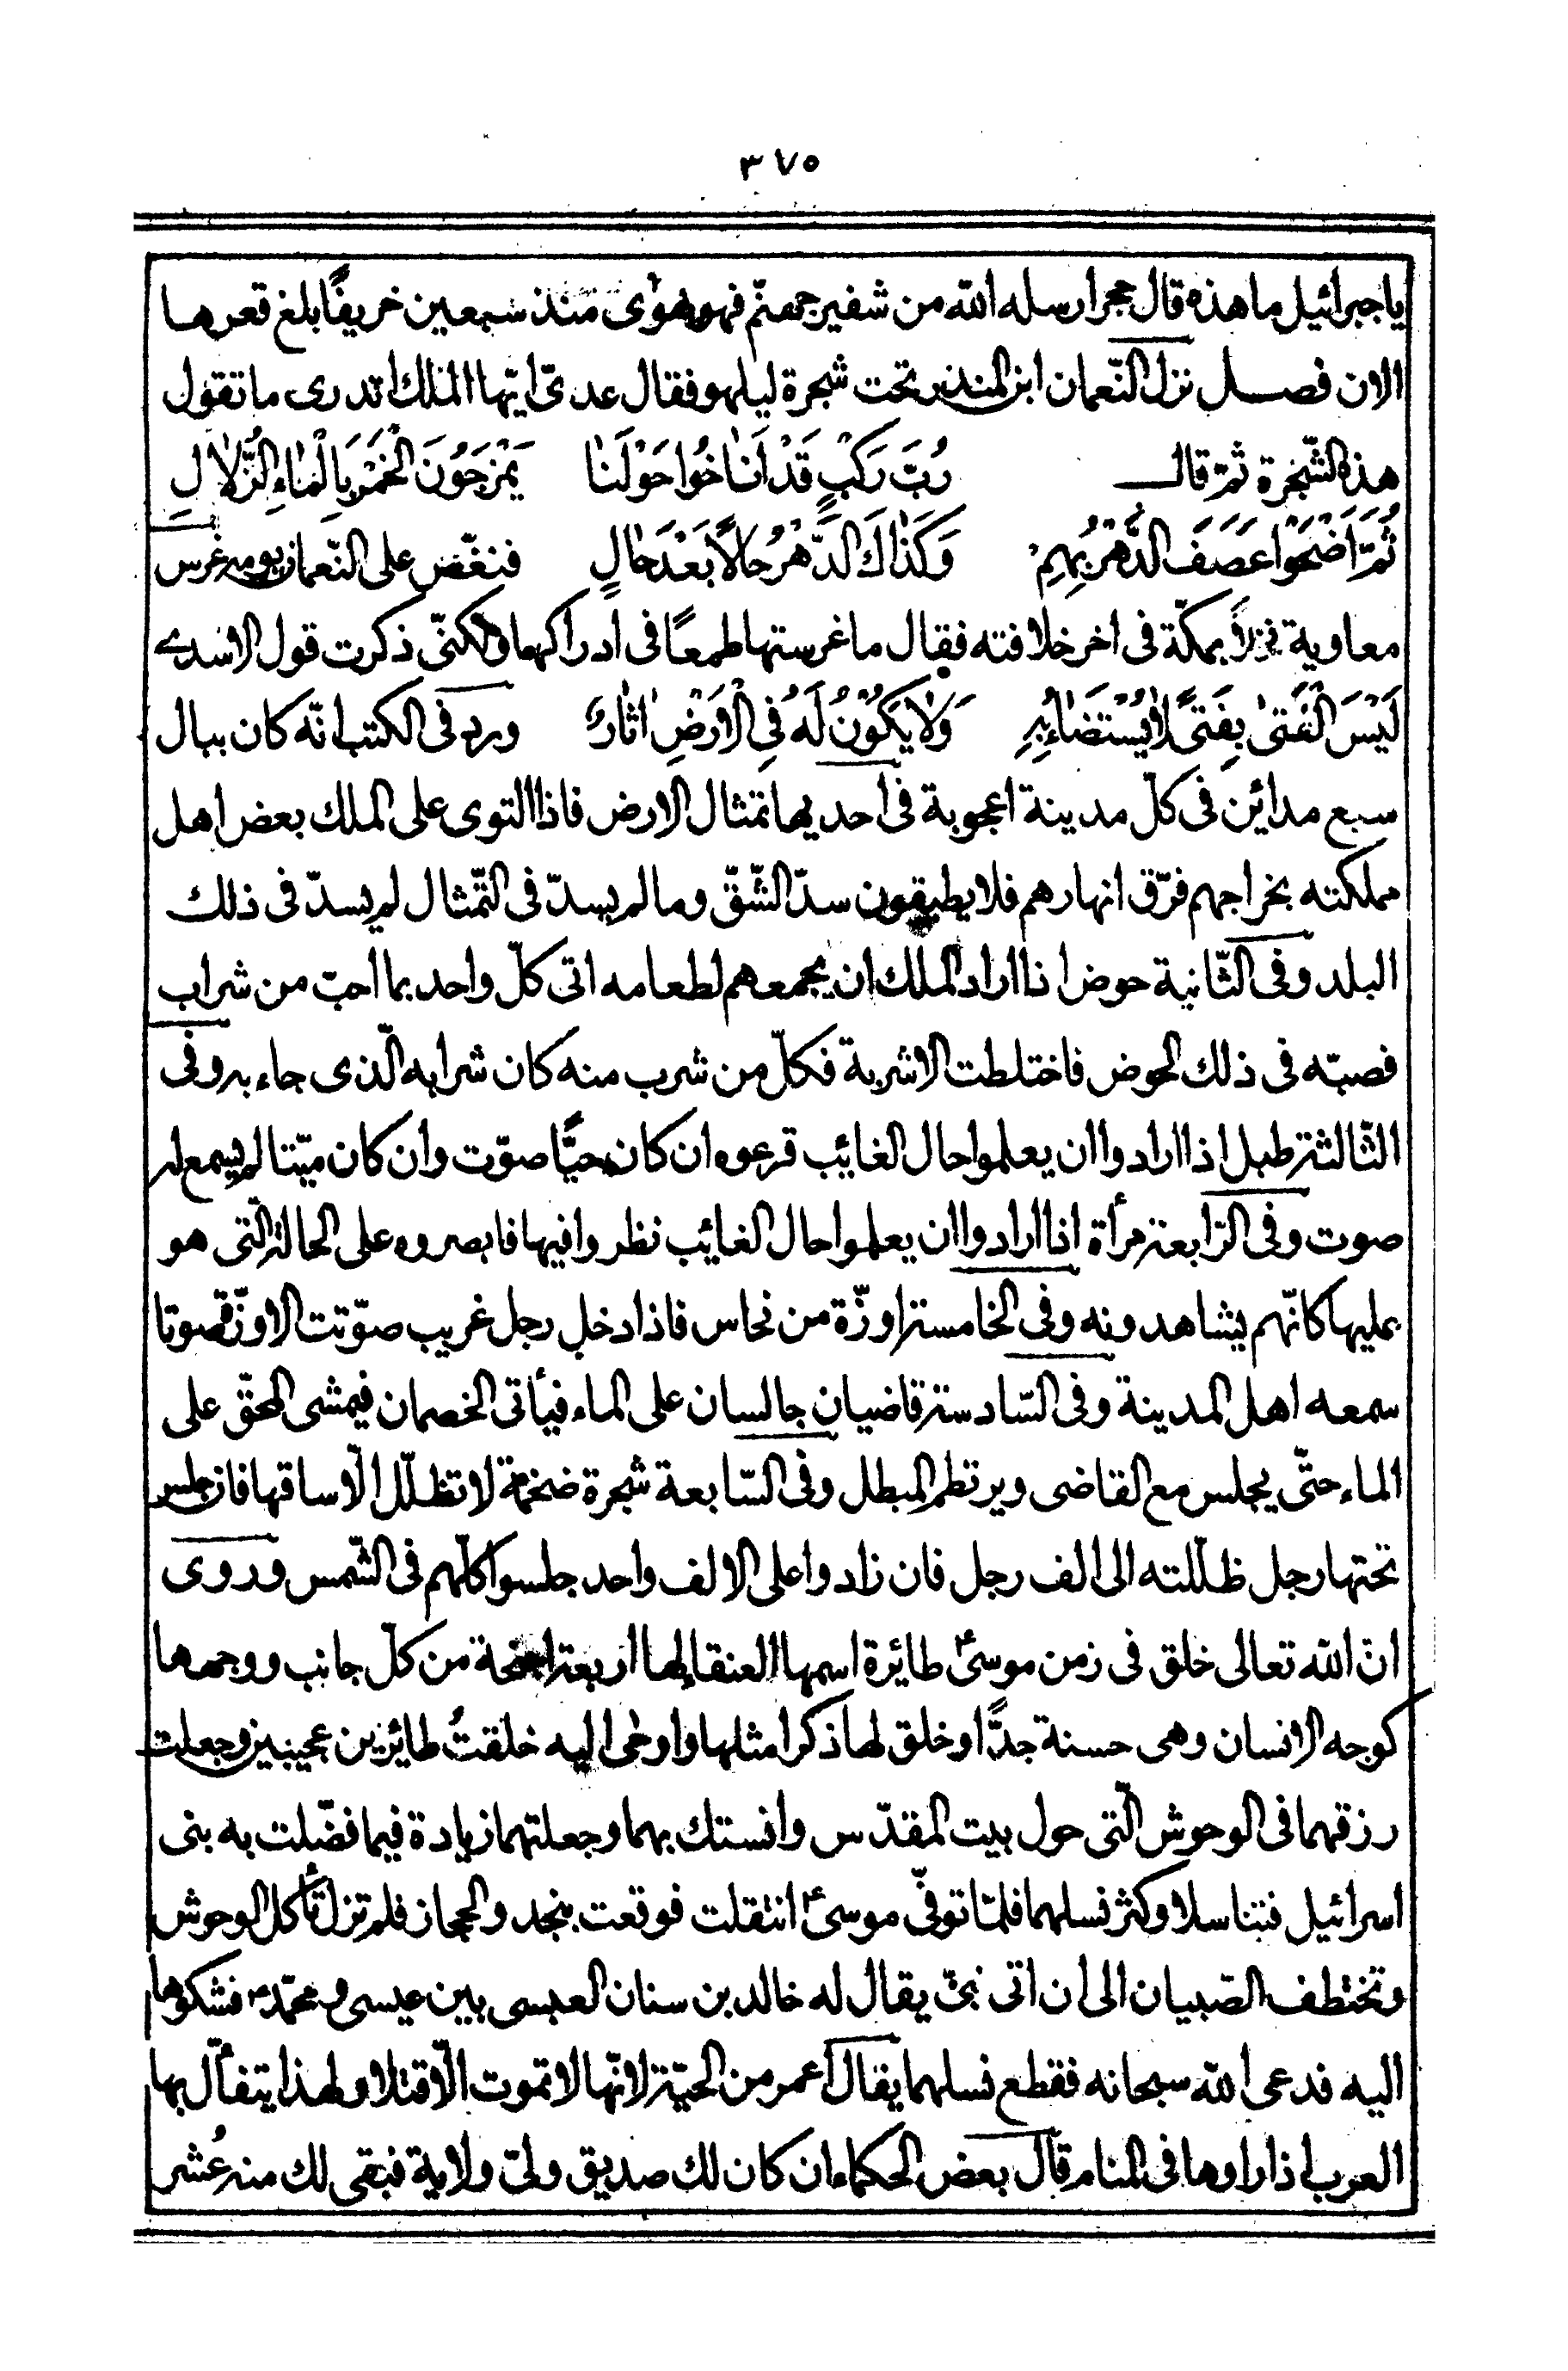 ٣٧٥
يا جبرائيل ما هذه قال حجر ارسله الله من شفير جهنّم فهو يهوى منذ سبعين خريفًا بلغ قعرها
الان فصل نزل النّعمان ابن المنذر تحت شجرة ليلهو فقال عدىّ ايّها الملك اتدرى ما تقول
هذه الشّجرة ثمّ قال رُبَّ رَكْبٍ قَدْ اَنَاخُوا حَوْلَنَا يَمْزِجُونَ الْخَمْرَ بِالْمَاءِ الزُّلَالِ
ثُمَّ اَضْحَوْا عَصَفَ الدَّهْرُ بِهِمْ وَكَذَاكَ الدَّهْرُ حَالًا بَعْدَ حَالِ فنغّص على النّعمان يومه غرس
معاوية نخلًا بمكّة فى اخر خلافته فقال ما غرستها طمعًا فى ادراكها ولكنّى ذكرت قول الاسدى
لَيْسَ الْفَتَىٰ بِفَتًى لَا يُسْتَضَاءُ بِهِ وَلَا يَكُونُ لَهُ فِي الْاَرْضِ اٰثَارٌ ورد فى الكتب انّه كان ببال
سبع مدائن فى كلّ مدينة اعجوبة فى احديها تمثال الارض فاذا التوى على الملك بعض اهل
مملكته بخراجهم فرّق انهارهم فلا يطيقون سدّ الشّقّ وما لم يسدّ فى التّمثال لم يسدّ فى ذلك
البلد وفى الثّانية حوض اذا اراد الملك ان يجمعهم لطعامه اتى كلّ واحد بما احبّ من شراب
فصبّه فى ذلك الحوض فاختلطت الاشربة فكلّ من شرب منه كان شرابه الّذى جاء به وفى
الثّالثة طبل اذا ارادوا ان يعلموا حال الغائب قرعوه ان كان حيًّا صوّت وان كان ميّتا لم يسمع له
صوت وفى الرّابعة مرأة اذا ارادوا ان يعلموا حال الغائب نظروا فيها فابصروه على الحالة الّتى هو
عليها كانّهم يشاهدونه وفى الخامسة اوزّة من نحاس فاذا دخل رجل غريب صوّتت الاوزّة صوتا
سمعه اهل المدينة وفى السّادسة قاضيان جالسان على الماء فيأتى الخصمان فيمشى المحقّ على
الماء حتّى يجلس مع القاضى ويرتطم المبطل وفى السّابعة شجرة ضخمة لا تظلّل الّا ساقها فان جلس
تحتها رجل ظلّلته الى الف رجل فان زادوا على الالف واحد جلسوا كلّهم فى الشّمس وروى
انّ الله تعالى خلق فى زمن موسىؑ طائرة اسمها العنقا لها اربعة اجنحة من كلّ جانب ووجهها
كوجه الانسان وهى حسنة جدًّا وخلق لها ذكرا مثلها واوحى اليه خلقتُ طائرين عجيبين وجعلت
رزقهما فى الوحوش الّتى حول بيت المقدّس وانستك بهما وجعلتهما زيادة فيما فضّلت به بنى
اسرائيل فتناسلا وكثر نسلهما فلمّا توفّى موسىؑ انتقلت فوقعت بنجد والحجاز فلم تزل تأكل الوحوش
وتختطف الصّبيان الى ان اتى نبىّ يقال له خالد بن سنان العبسى بين عيسى و محمّدؐ فشكوها
اليه فدعى الله سبحانه فقطع نسلهما يقال اعمر من الحيّة لانّها لا تموت الّا قتلا ولهذا يتفأّل بها
العرب اذا راوها فى المنام قال بعض الحكماء ان كان لك صديق ولىّ ولاية فبقى لك منه عُشر